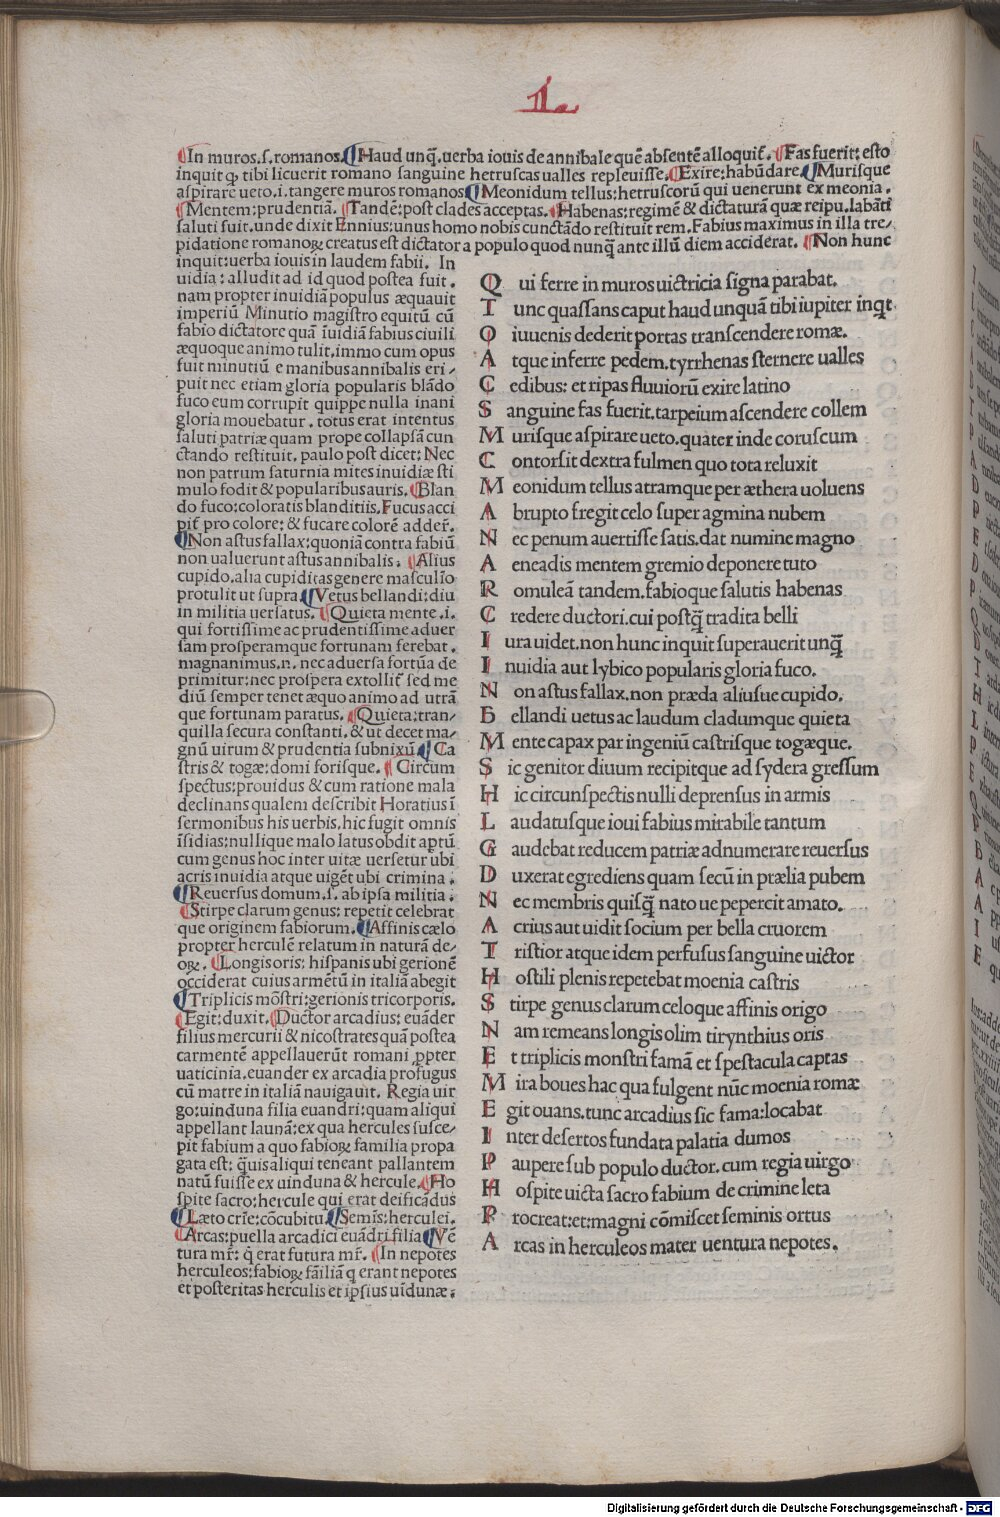 In muros.ſ.romanos. Haud unq̃.uerba iouis de annibale quẽ abſentẽ alloquit̃. Fas fuerit: eſto
inquit ꝙ tibi licuerit romano ſanguine hetruſcas ualles repleuiſſe. Exire: habũdare. Muriſque
aſpirare ueto.i.tangere muros romanos. Meonidum tellus: hetruſcorũ qui uenerunt ex meonia.
Mentem: prudentiã. Tandẽ: poſt clades acceptas. Habenas: regimẽ & dictaturã quæ reipu.labãti
ſaluti fuit.unde dixit Ennius: unus homo nobis cunctãdo reſtituit rem. Fabius maximus in illa tre/
pidatione romanoꝝ creatus eſt dictator a populo quod nunq̃ ante illũ diem acciderat. Non hunc
inquit: uerba iouis in laudem fabii. In
uidia: alludit ad id quod poſtea fuit.
nam propter inuidiã populus æquauit
imperiũ Minutio magiſtro equitũ cũ
fabio dictatore quã ĩuidiã fabius ciuili
æquoque animo tulit.immo cum opus
fuit minutiũ e manibus annibalis eri/
puit nec etiam gloria popularis blãdo
fuco eum corrupit quippe nulla inani
gloria mouebatur. totus erat intentus
ſaluti patriæ quam prope collapſã cun
ctando reſtituit. paulo poſt dicet: Nec
non patrum ſaturnia mites inuidiæ ſti
mulo fodit & popularibus auris. Blan
do fuco: coloratis blanditiis. Fucus acci
pit̃ pro colore: & fucare colorẽ adder̃.
Non aſtus fallax: quoniã contra fabiũ
non ualuerunt aſtus annibalis. Alius
cupido.alia cupiditas genere maſculĩo
protulit ut ſupra. Vetus bellandi: diu
in militia uerſatus. Quieta mente.i.
qui fortiſſime ac prudentiſſime aduer
ſam proſperamque fortunam ferebat.
magnanimus.n. nec aduerſa fortũa de
primitur: nec proſpera extollit̃ ſed me
diũ ſemper tenet æquo animo ad utrã
que fortunam paratus. Quieta: tran/
quilla ſecura conſtanti. & ut decet ma/
gnũ uirum & prudentia ſubnixũ Ca
ſtris & togæ: domi foriſque. Circum
ſpectus: prouidus & cum ratione mala
declinans qualem deſcribit Horatius ĩ
ſermonibus his uerbis. hic fugit omnis
ĩſidias: nullique malo latus obdit aptũ
cum genus hoc inter uitæ uerſetur ubi
acris inuidia atque uigẽt ubi crimina.
Reuerſus domum.ſ. ab ipſa militia.
Stirpe clarum genus: repetit celebrat
que originem fabiorum. Affinis cælo
propter herculẽ relatum in naturã de/
oꝝ. Longis oris: hiſpanis ubi gerionẽ
occiderat cuius armẽtũ in italiã abegit
Triplicis mõſtri: gerionis tricorporis.
Egit: duxit. Ductor arcadius: euãder
filius mercurii & nicoſtrates quã poſtea
carmentẽ appellauerũt romani ꝓpter
uaticinia.euander ex arcadia profugus
cũ matre in italiã nauigauit. Regia uir
go: uinduna filia euandri: quam aliqui
appellant launã: ex qua hercules ſuſce/
pit fabium a quo fabioꝝ familia propa
gata eſt: q̃uis aliqui teneant pallantem
natũ fuiſſe ex uinduna & hercule. Ho
ſpite ſacro: hercule qui erat deificãdus
Læto crĩe: cõcubitu. Semĩs: herculei.
Arcas: puella arcadici euãdri filia Vẽ
tura mr̃: q̃ erat futura mr̃. In nepotes
herculeos: fabioꝝ fãiliã q erant nepotes
et poſteritas herculis et ipſius uĩdunæ.
Qui ferre in muros uictricia ſigna parabat.
Tunc quaſſans caput haud unquã tibi iupiter inqt
O iuuenis dederit portas tranſcendere romæ.
Atque inferre pedem.tyrrhenas ſternere ualles
Cedibus: et ripas fluuiorũ exire latino
Sanguine fas fuerit.tarpeium aſcendere collem
Muriſque aſpirare ueto.quater inde coruſcum
Contorſit dextra fulmen quo tota reluxit
Meonidum tellus atramque per æthera uoluens
Abrupto fregit celo ſuper agmina nubem
Nec penum auertiſſe ſatis.dat numine magno
Aeneadis mentem gremio deponere tuto
Romuleã tandem.fabioque ſalutis habenas
Credere ductori.cui poſtq̃ tradita belli
Iura uidet.non hunc inquit ſuperauerit unq̃
Inuidia aut lybico popularis gloria fuco.
Non aſtus fallax.non præda aliuſue cupido.
Bellandi uetus ac laudum cladumque quieta
Mente capax par ingeniũ caſtriſque togæque.
Sic genitor diuum recipitque ad ſydera greſſum
Hic circunſpectis nulli deprenſus in armis
Laudatuſque ioui fabius mirabile tantum
Gaudebat reducem patriæ adnumerare reuerſus
Duxerat egrediens quam ſecũ in prælia pubem
Nec membris quiſq̃ nato ue pepercit amato.
Acrius aut uidit ſocium per bella cruorem
Triſtior atque idem perfuſus ſanguine uictor
Hoſtili plenis repetebat moenia caſtris
Stirpe genus clarum celoque affinis origo
Nam remeans longis olim tirynthius oris
Et triplicis monſtri famã et ſpectacula captas
Mira boues hac qua fulgent nũc moenia romæ
Egit ouans.tunc arcadius ſic fama: locabat
Inter deſertos fundata palatia dumos
Paupere ſub populo ductor. cum regia uirgo
Hoſpite uicta ſacro fabium de crimine leta
Procreat: et: magni cõmiſcet ſeminis ortus
Arcas in herculeos mater uentura nepotes.
Digitalisierung gefördert durch die Deutsche Forschungsgemeinschaft - DFG